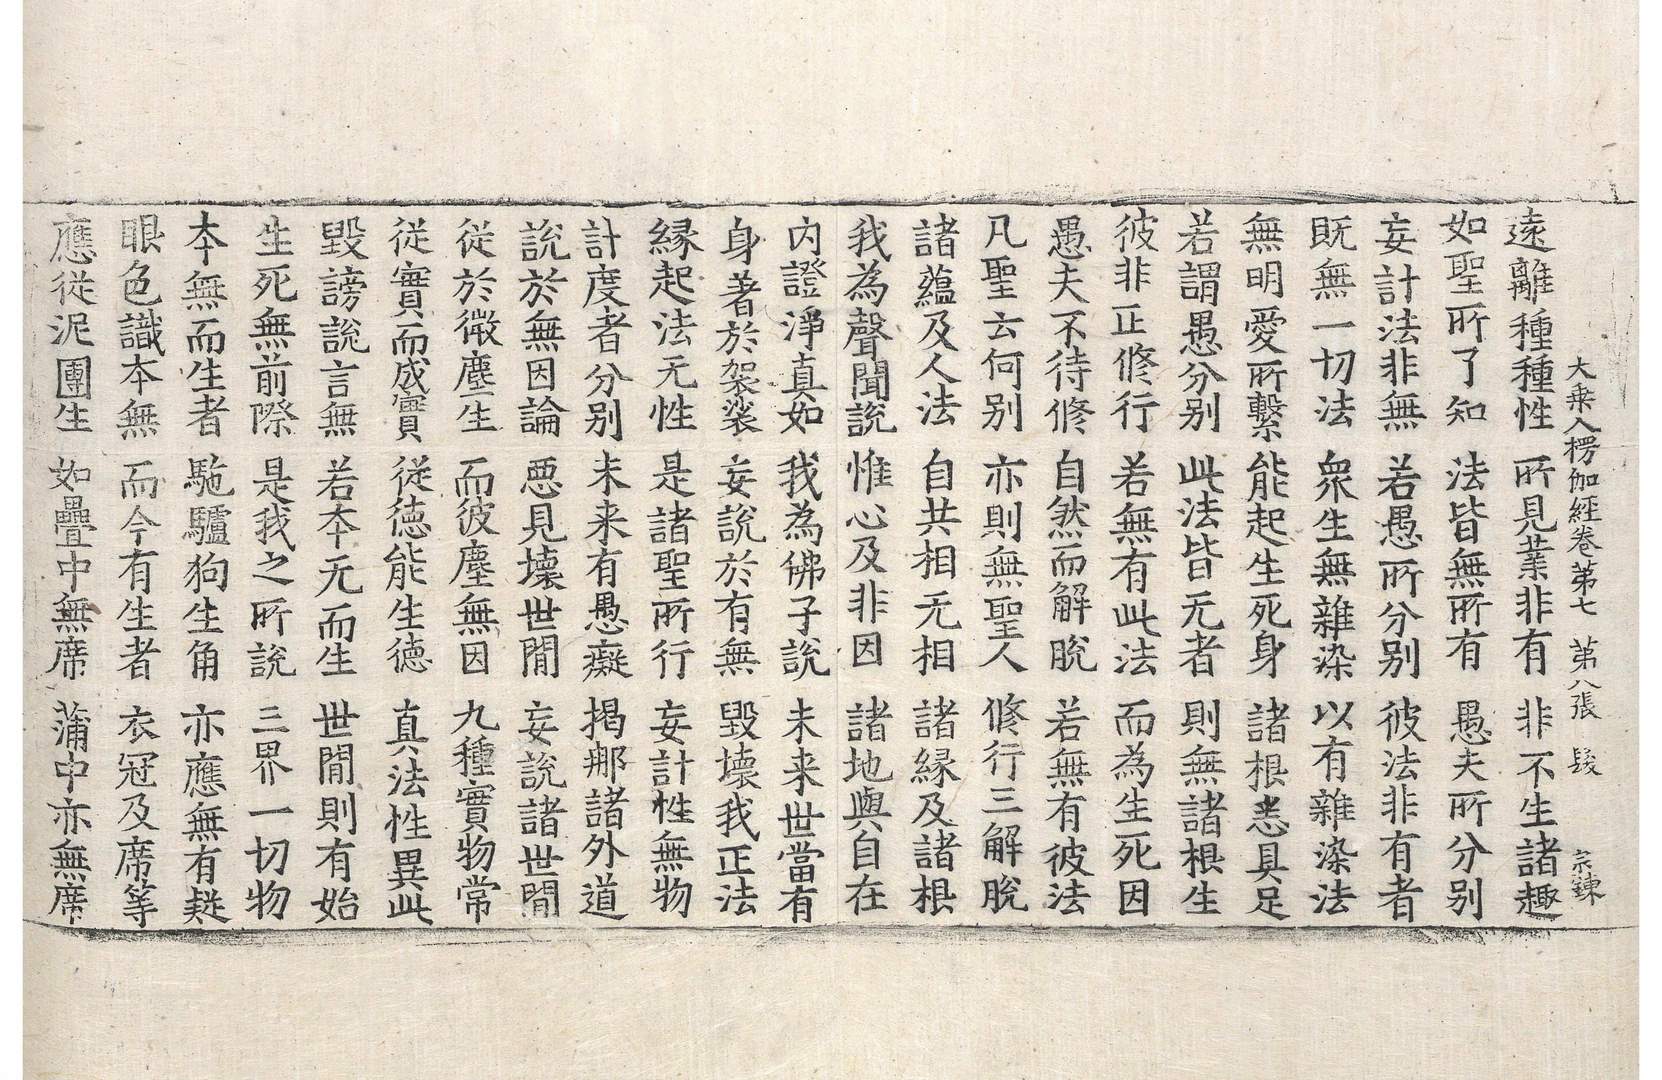 大乗入楞伽経卷第七 第八張 髮 宗鍊
遠離種種性 所見業非有 非不生諸趣
如聖所了知 法皆無所有 愚夫所分別
妄計法非無 若愚所分別 彼法非有者
既無一切法 衆生無雜染 以有雜染法
無明愛所繫 能起生死身 諸根悉具足
若謂愚分別 此法皆无者 則無諸根生
彼非正修行 若無有此法 而為生死因
愚夫不待修 自然而解脫 若無有彼法
凡聖云何別 亦則無聖人 修行三解脫
諸蘊及人法 自共相无相 諸縁及諸根
我為聲聞說 惟心及非因 諸地與自在
內證淨真如 我為佛子說 未来世當有
身著於袈裟 妄說於有無 毀壞我正法
縁起法无性 是諸聖所行 妄計性無物
計度者分別 未来有愚癡 揭那諸外道
說於無因論 惡見壞世間 妄說諸世間
從於微塵生 而彼塵無因 九種實物常
從實而成實 從徳能生德 真法性異此
毀謗說言無 若本无而生 世間則有始
生死無前際 是我之所說 三界一切物
本無而生者 駞驢狗生角 亦應無有疑
眼色識本無 而今有生者 衣冠及席等
應從泥團生 如疊中無席 蒲中亦無席